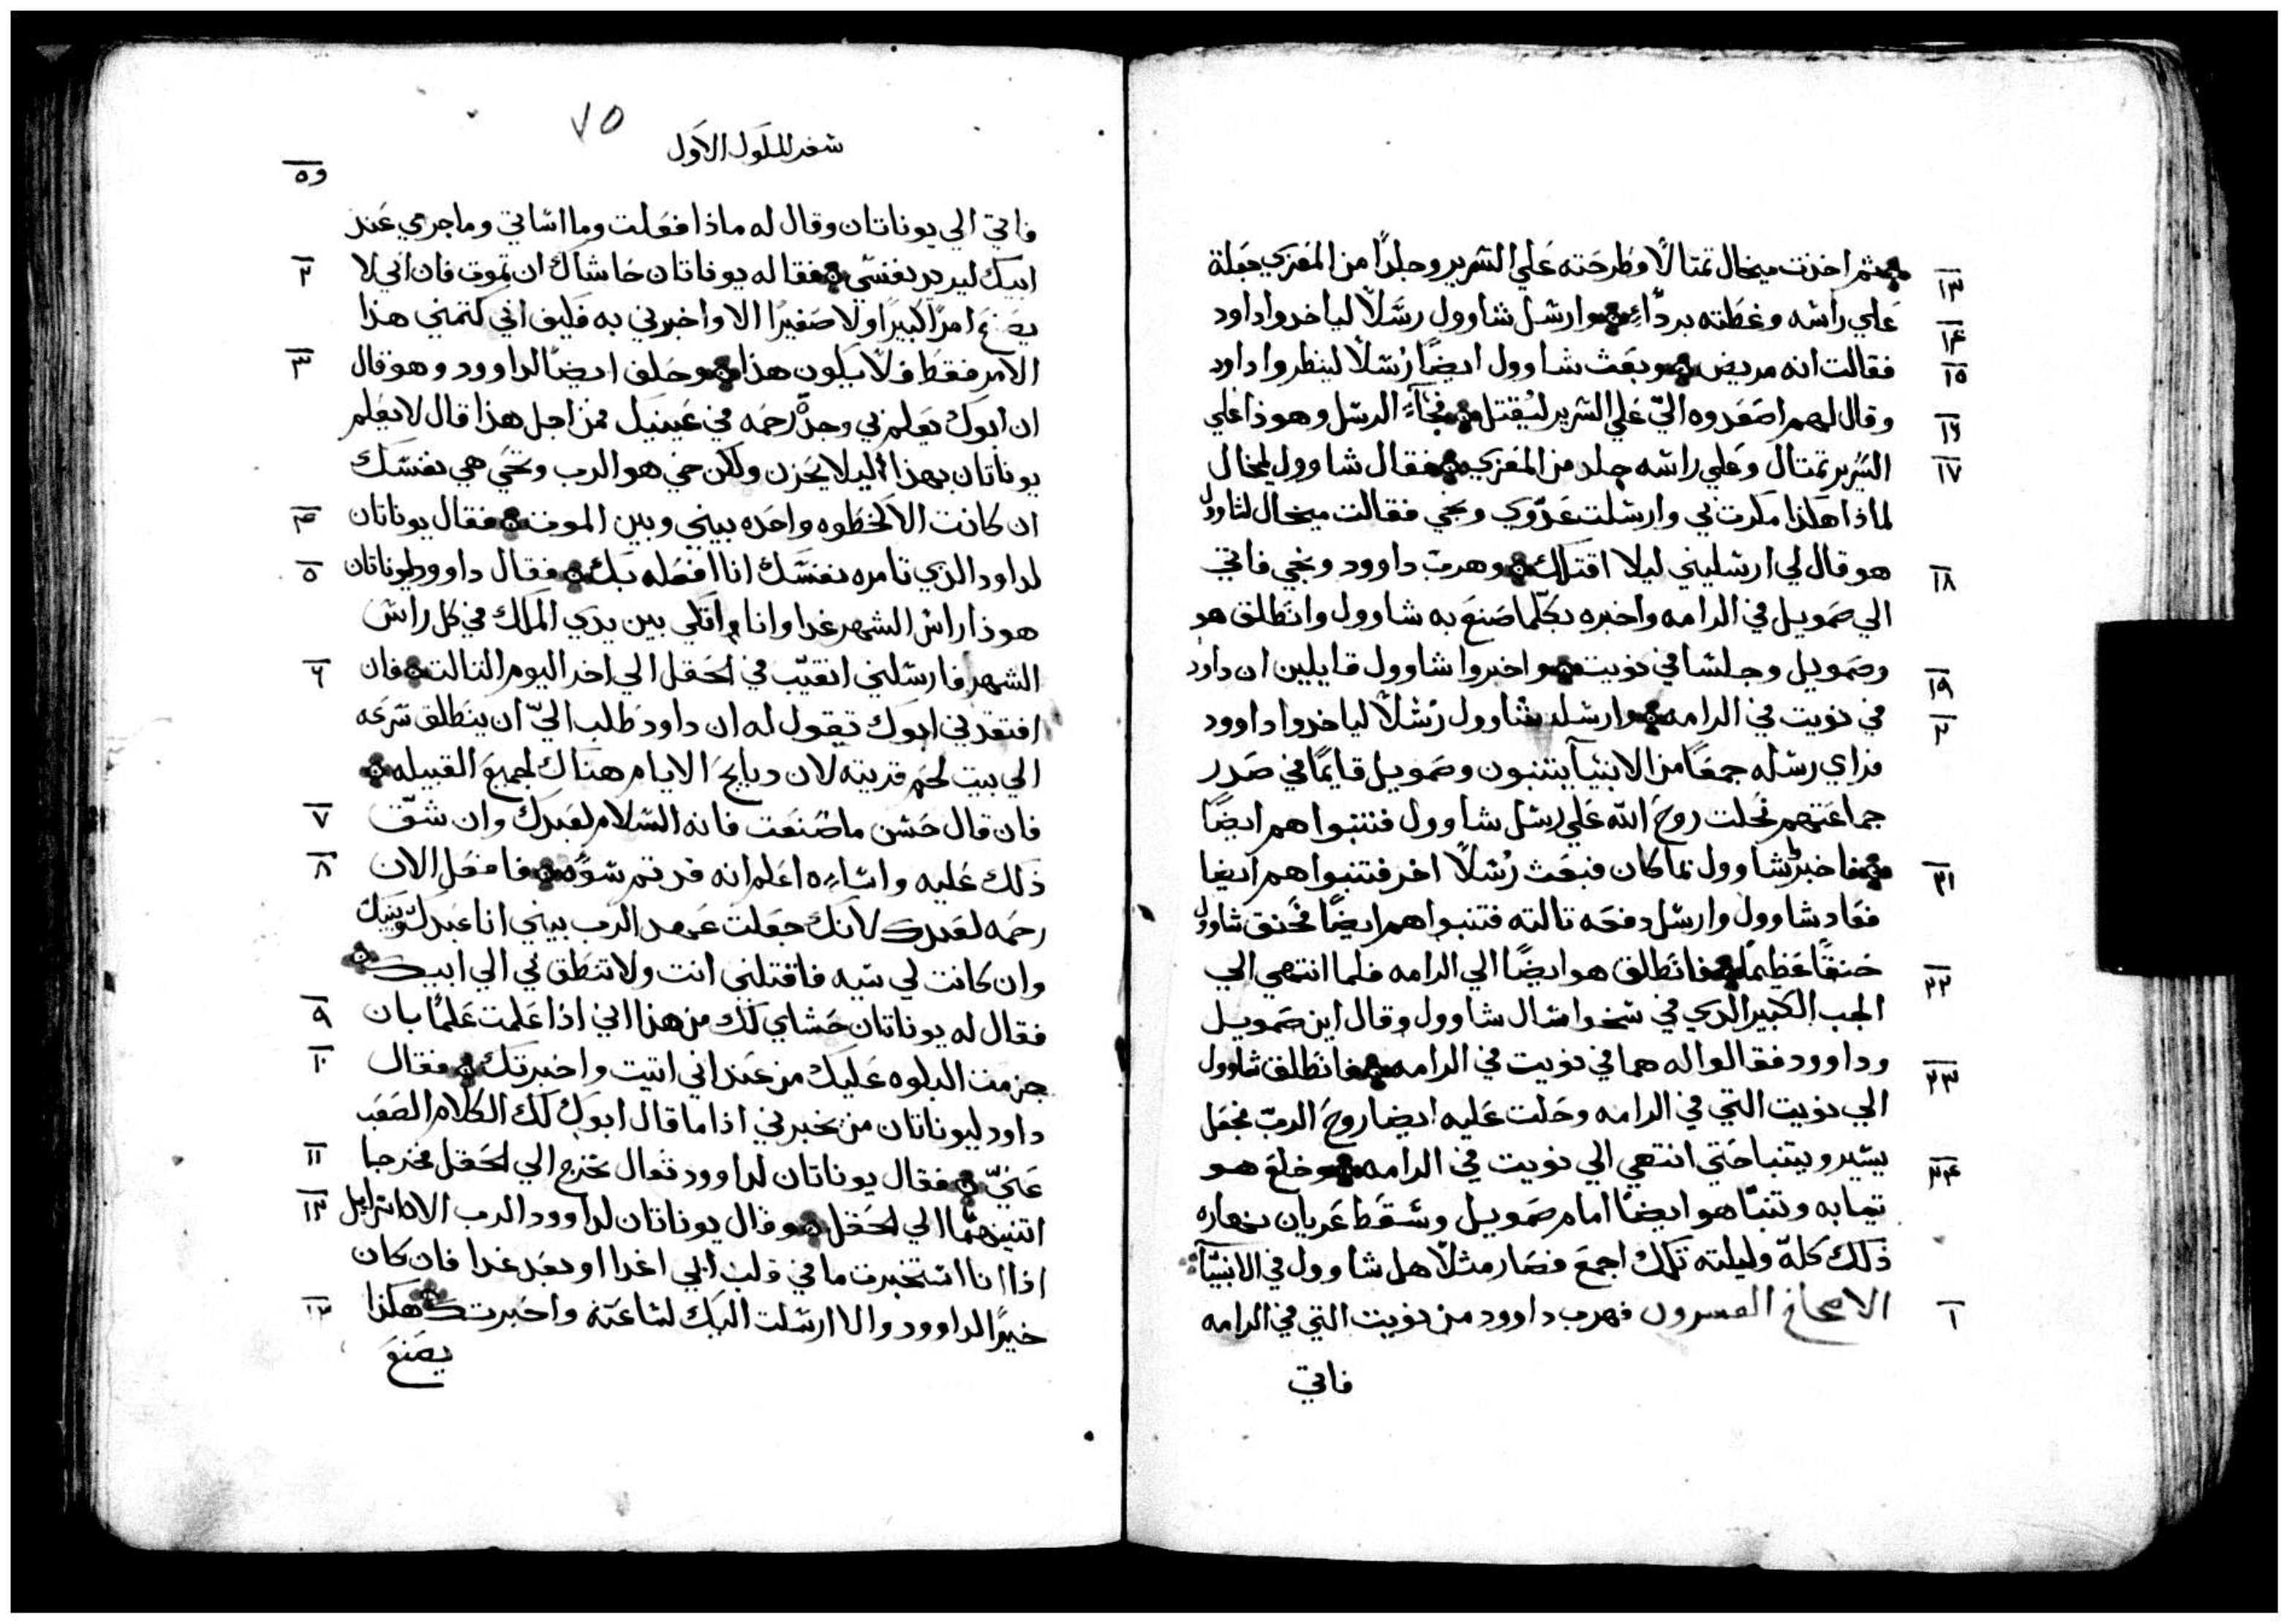 ١٣ ثم اخذت ميخال تمتالًا وطرحته علي السرير وجلدًا من المعزي جعلة
١٤ علي راسه وغطته بردآءٍ وارسل شاوول رسلًا لياخدوا داود
١٥ فقالت انه مريض وبعث شاوول ايضًا رُسلًا لينظروا داود
١٦ وقال لهم اصعدوه اليّ علي السرير ليُقتل فجآءَ الرسل وهوذا علي
١٧ السَرير تمتال وعلي راسه جلد من المعزي فقال شاوول لميخال
لماذا هكذا مكرت بي وارسلت عدّوي ونجي فقالت ميخال لشاوول
١٨ هو قال لي ارسليني ليلا اقتلك وهربَ داوود ونجي فاتي
الي صمويل في الرامه واخبره بكلّما صَنعَ به شاوول وانطلق هو
١٩ وصمويل وجلسا في نويت واخبروا شاوول قايلين ان داود
٢ في نويت في الرامه وارسل شاوول رُسُلًا لياخدوا داوود
فراي رسله جمعًا من الانبيآ يتنبون وصمويل قايمًا في صَدر
جماعَتهم فحلت روحَ الله عَلي رسل شاوول فتنبوا هم ايضًا
٢١ فاخبرُ شاوول بما كان فبعَث رُسُلًا اخر فتنبوا هم ايضا
فعَاد شاوول وارسل دفعَه تالته فتنبوا هم ايضًا فحَنق شاوول
٢٢ حنقًا عَظيمًا فانطلق هو ايضًا الي الرامه فلما انتهي الي
الجب الكبير الدي في سخو اسال شاوول وقال اين صمويل
٢٣ وداوود فقالوا له هما في نويت في الرامه فانطلق شاوول
الي نويت التي في الرامه وحَلت عَليه ايضا روحَ الربّ فجعَل
٢٤ يسَير ويتنبا حَتي انتهي الي نويت في الرامه وخلعَ هو
تيابه وتنبّا هو ايضًا امام صَمويل وسقَط عَريان نهاره
ذلك كلهّ وليلته تلك اجمعَ فصَار مثلًا هل شاوول في الانبيّآ
١ الاصحاح العسرون فهرب داوود من نويت التي في الرامه
فاتي
٧٥
سفر الملوك الاَول
فاتي الي يوناتان وقال له ماذا فعَلت وما اساتي وما جرمي عَند
٢ ابيك ليريد نفسَي فقال له يوناتان حَاشاك ان تموت فان ابي لا
يصَنعَ امرًا كبيرًا ولا صَغيرًا الا واخبرني به فكيف ابي كتمني هذا
٣ الامر فقط فلا يكون هذا وحَلف ايضًا لداوود وهو قال
ان ابوك يعَلم بي وجدّة رحمَه في عَينيك فمن اجل هذا قال لا يعَلم
يوناتان بهذا ليلا يحَزن ولكن حي هو الرب وحَي هي نفسَك
٤ ان كانت الا كخطَوه واحَده بيني وبين الموت فقال يوناتان
٥ لداود الذي تامره نفسَك انا افعَله بك فقال داوود ليوناتان
هوذا راس الشهر غدا وانا اتكي بين يدي الملك في كل راس
٦ الشهر فارسَلني اتغيّب في الحَقل الي اخر اليوم التالت فان
افتقدني ابوك تقول له ان داود طَلب اليّ ان ينطَلق سَرعه
الي بيت لحَم قريته لان دبايحَ الايام هناك لجميعَ القبيله
٧ فان قال حَسَن ما صُنعَت فانه السَلام لعَبدك وان شقّ
٨ ذلك عَليه واساءه اعلم انه قد تم سَوّه فافعَل الان
رحَمه لعَبدك لانك جعَلت عَهد الرب بيني انا عَبدك وبينك
وان كانت لي سيه فاقتلني انت ولا تنطَلق بي الي ابيك
٩ فقال له يوناتان حَشاي لك من هذا اني اذا عَلمت عَلمًا بان
١٠ جزمت البلوه عَليك من عَند ابي اتيت واخبرتك فقال
داود ليوناتان من يخبرني اذا ما قال ابوك لك الكلام الصَعَب
١١ عَنيّ فقال يوناتان لداوود تعال نخرج الي الحَقل فخرجا
١٢ اتنينهمّا الي الحَقل وقال يوناتان لداوود الرب الاه اسرايل
اذا انا استخبرت ما في قلب ابي اغدا او بعَد غدا فان كان
١٣ خيرًا لداوود والا ارسَلت اليك لسَاعَته واخبرتك هكذا
يصَنعَ